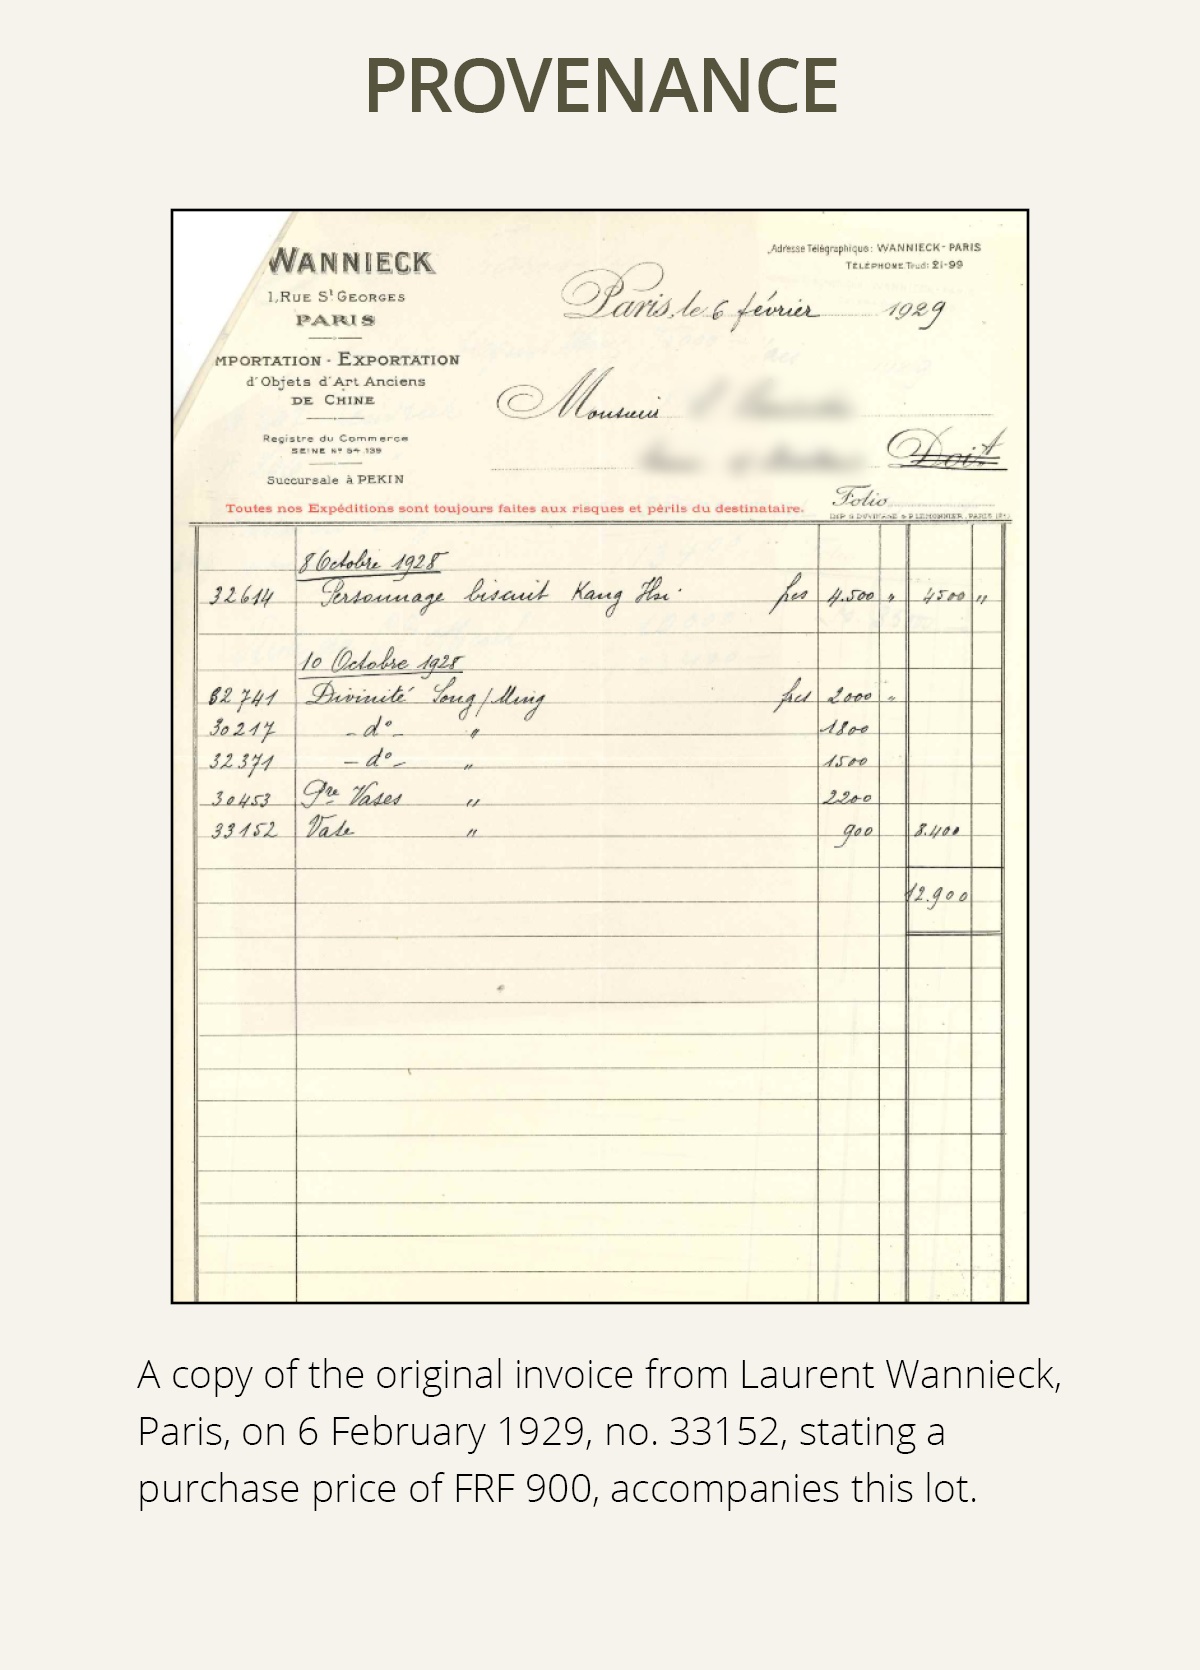 PROVENANCE
WANNIECK
1, RUE St GEORGES
PARIS
MPORTATION - EXPORTATION
d'Objets d'Art Anciens
DE CHINE
Registre du Commerce
SEINE No 54.139
Succursale à PEKIN
Adresse Télégraphique: WANNIECK-PARIS
TÉLÉPHONE Trud: 21-99
Paris, le 6 février 1929
Monsieur
Doit
Toutes nos Expéditions sont toujours faites aux risques et périls du destinataire.
Folio
8 Octobre 1928
32614 Personnage biscuit Kang Hsi frcs 4.500 " 4500 "
10 Octobre 1928
32741 Divinité Song/Ming frcs 2000 "
30217 - do - " 1800
32371 - do - " 1500
30453 Pre Vases " 2200
33152 Vase " 900 8.400
12.900
A copy of the original invoice from Laurent Wannieck,
Paris, on 6 February 1929, no. 33152, stating a
purchase price of FRF 900, accompanies this lot.